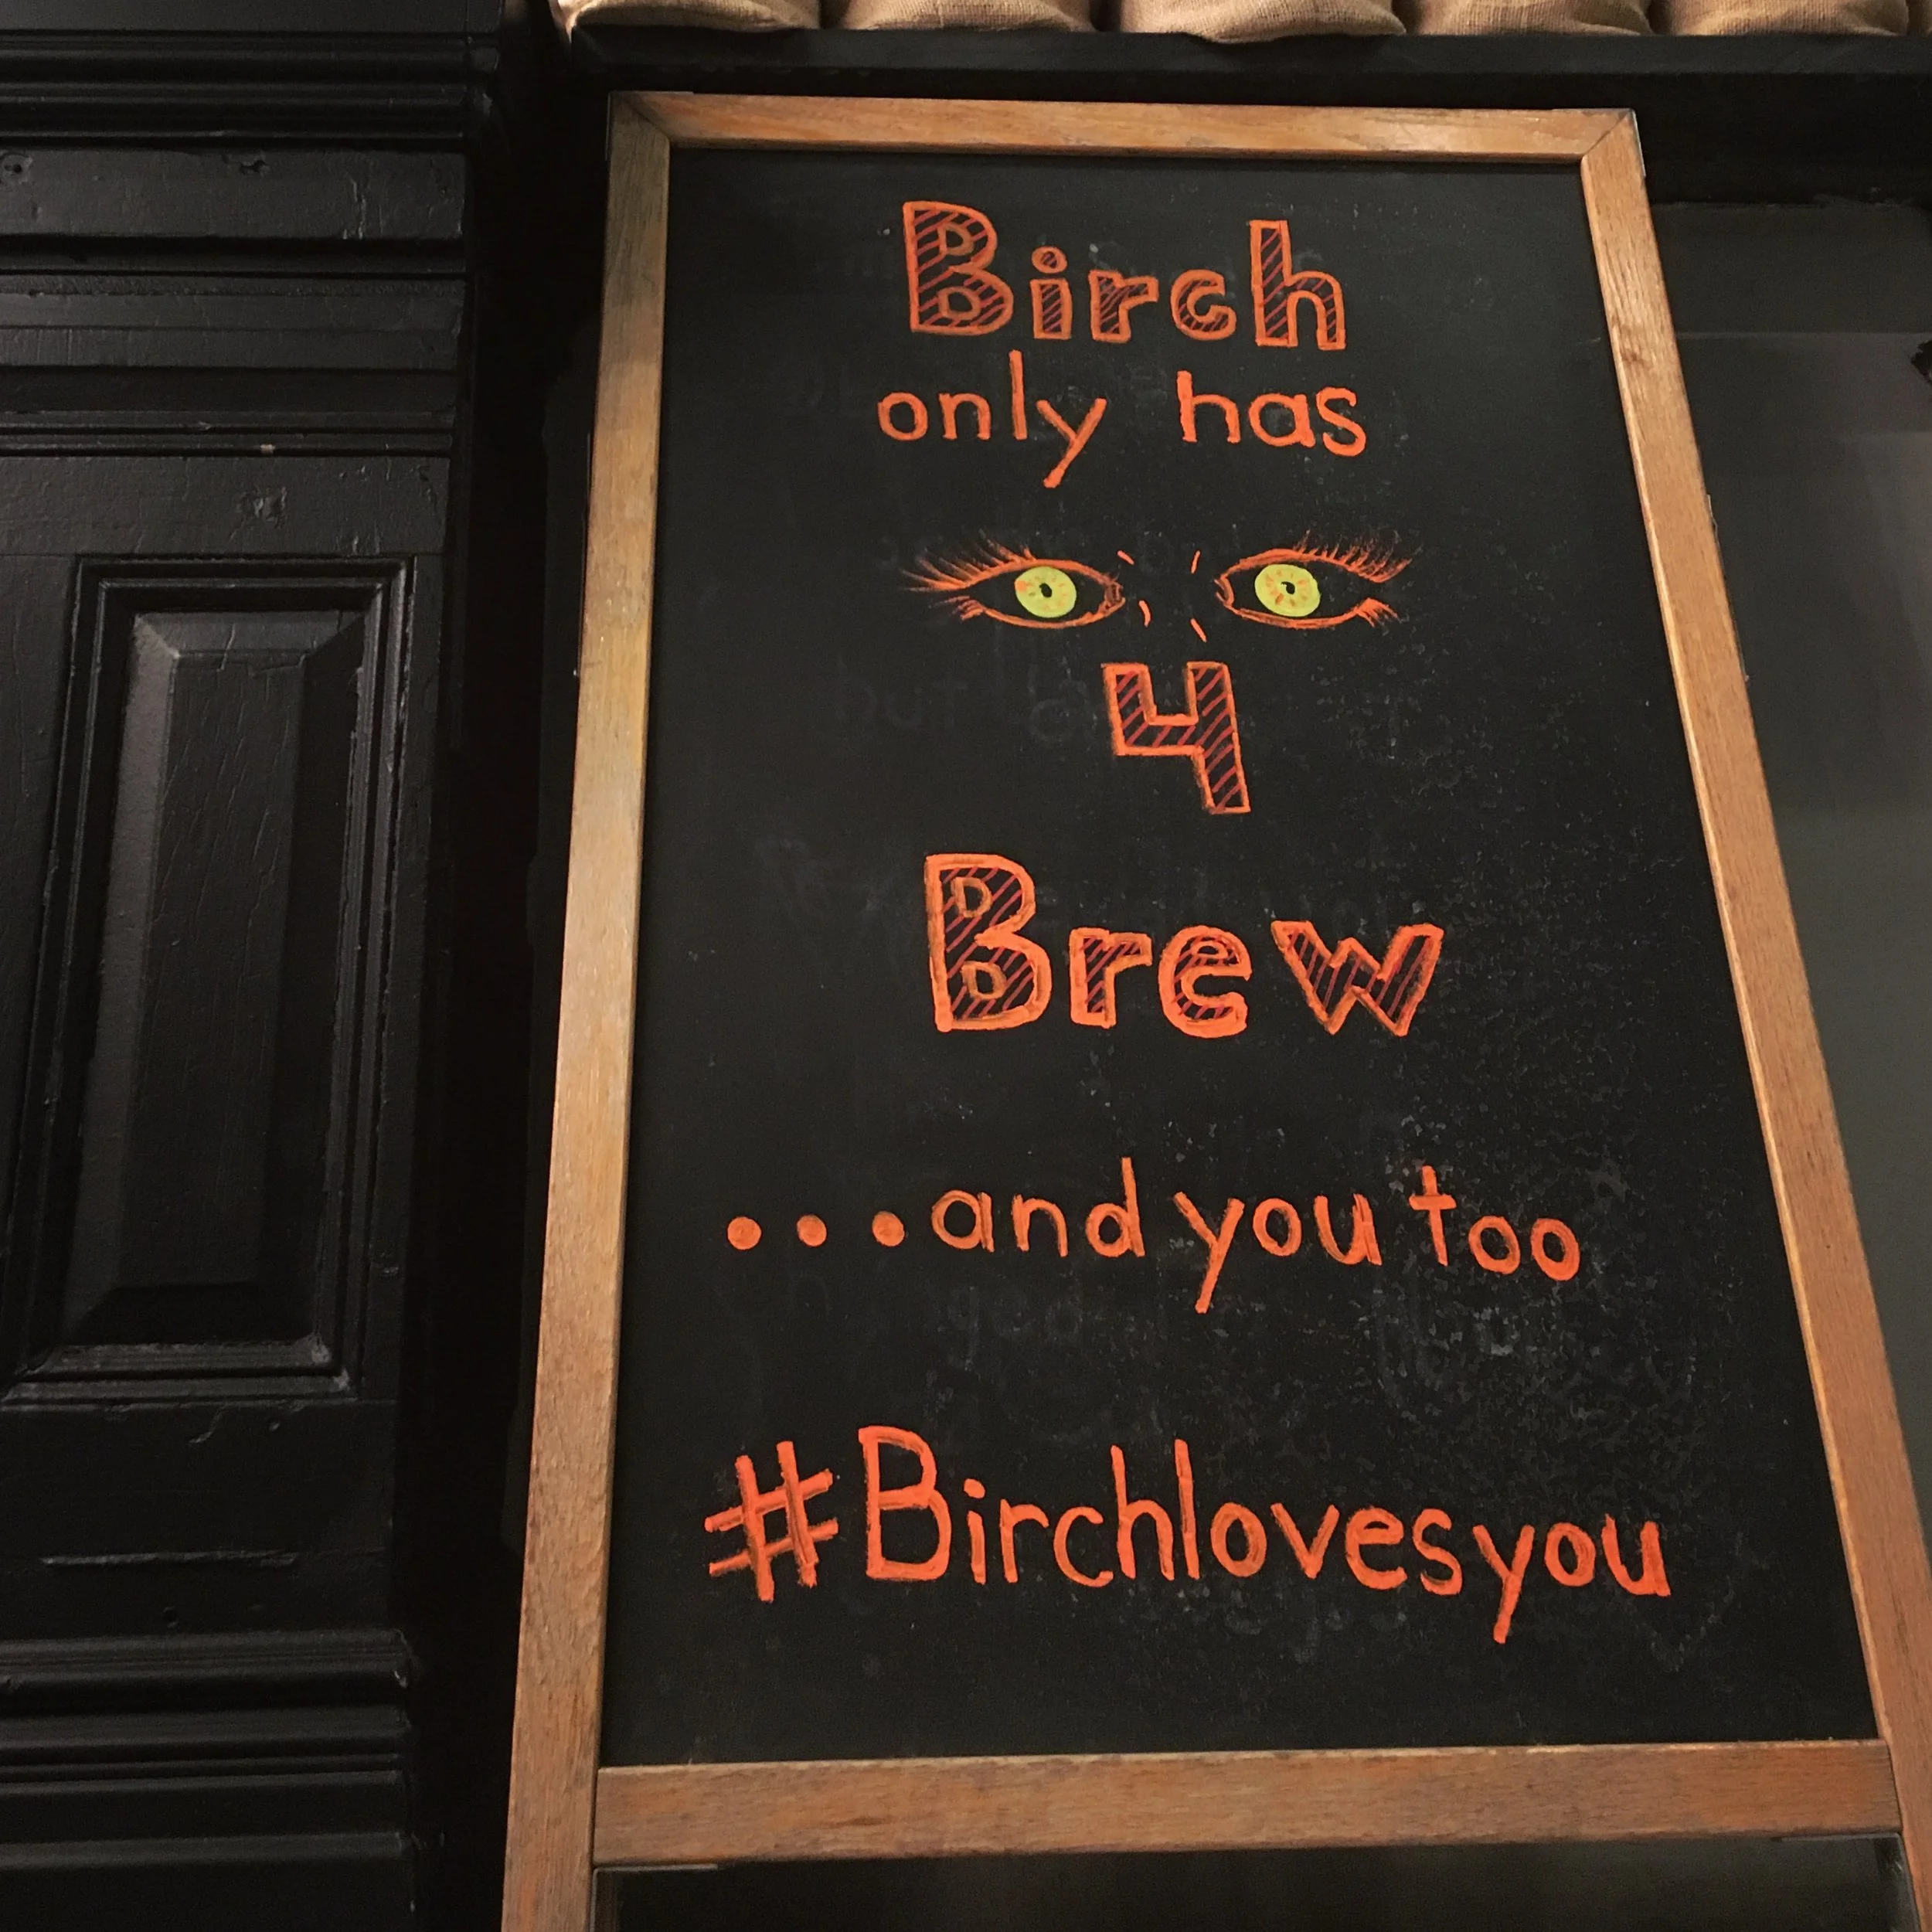 Birch
only has
4
Brew
...and you too
#Birchlovesyou